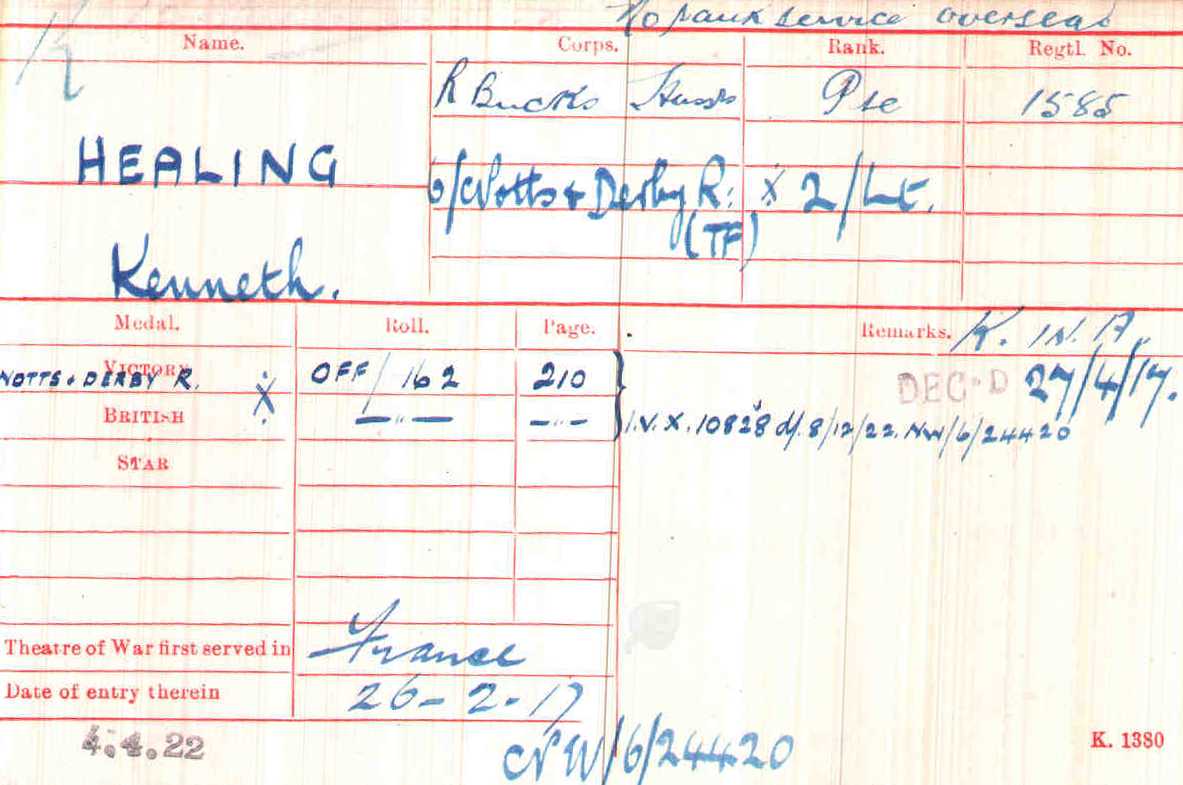 No rank service overseas
Name. Corps. Rank. Regtl. No.
R Bucks Huss Pte 1585
HEALING 6/Notts & Derby R: X 2/Lt.
(TF)
Kenneth.
Medal. Roll. Page. Remarks. K. IN. A.
VICTORY OFF/162 210 DEC-D 27/4/17.
NOTTS & DERBY R. X
BRITISH —"— —"— I.V.X. 10828 d/. 8/12/22. NW/6/24420
STAR
Theatre of War first served in France
Date of entry therein 26-2-17
4.4.22 NW/6/24420 K. 1380